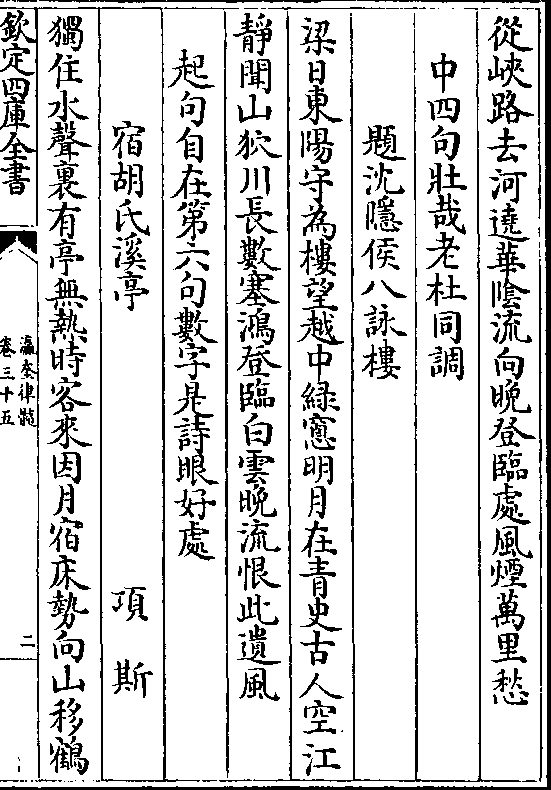 從峽路去河遶華陰流向晚登臨處風煙萬里愁
中四句壯哉老杜同調
題沈隱侯八詠樓
梁日東陽守為樓望越中緑窻明月在青史古人空江
静聞山狖川長數塞鴻登臨白雲晚流恨此遺風
起句自在第六句數字是詩眼好處
宿胡氏溪亭 項斯
獨住水聲裏有亭無熱時客來因月宿床勢向山移鶴
欽定四庫全書
瀛奎律髓
卷三十五
二